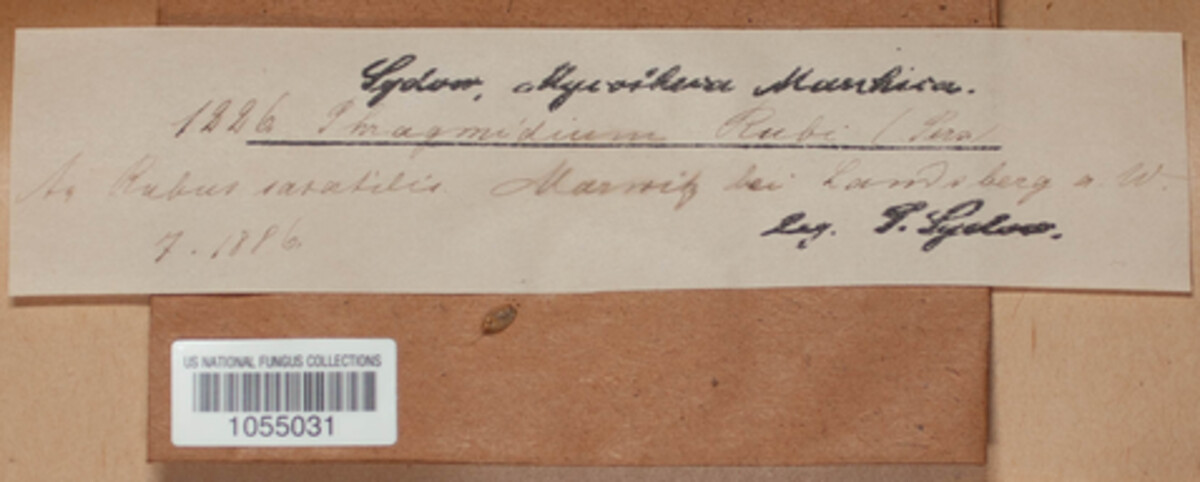 Sydow, Mycotheca Marchica.
1226 Phragmidium Rubi (Pers)
An Rubus saxatilis. Marwitz bei Landsberg a. W.
7. 1886
leg. P. Sydow.
US NATIONAL FUNGUS COLLECTIONS
1055031